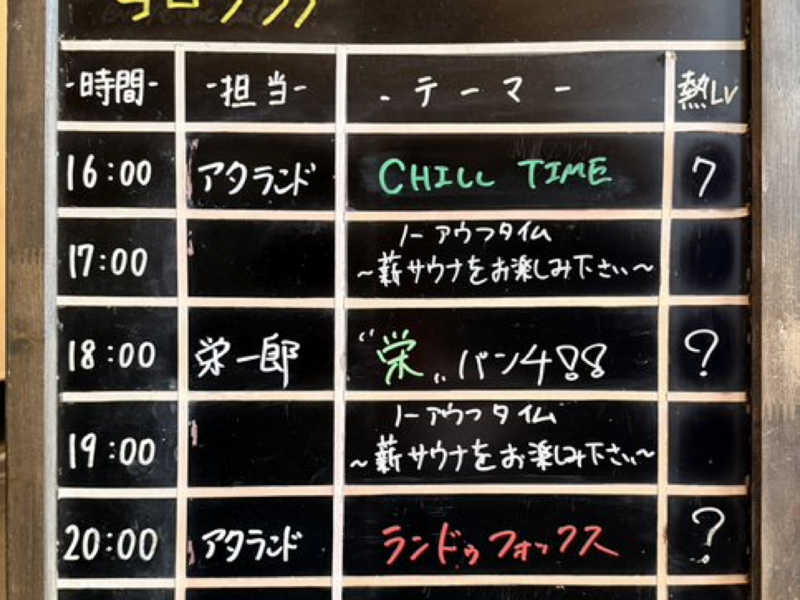 -時間- -担当- -テーマ- 熱LV
16:00 アタランド CHILL TIME 7
17:00 ノーアウフタイム
～薪サウナをお楽しみ下さい～
18:00 栄一郎 “栄„パンチ!! ?
19:00 ノーアウフタイム
～薪サウナをお楽しみ下さい～
20:00 アタランド ランドゥフォックス ?